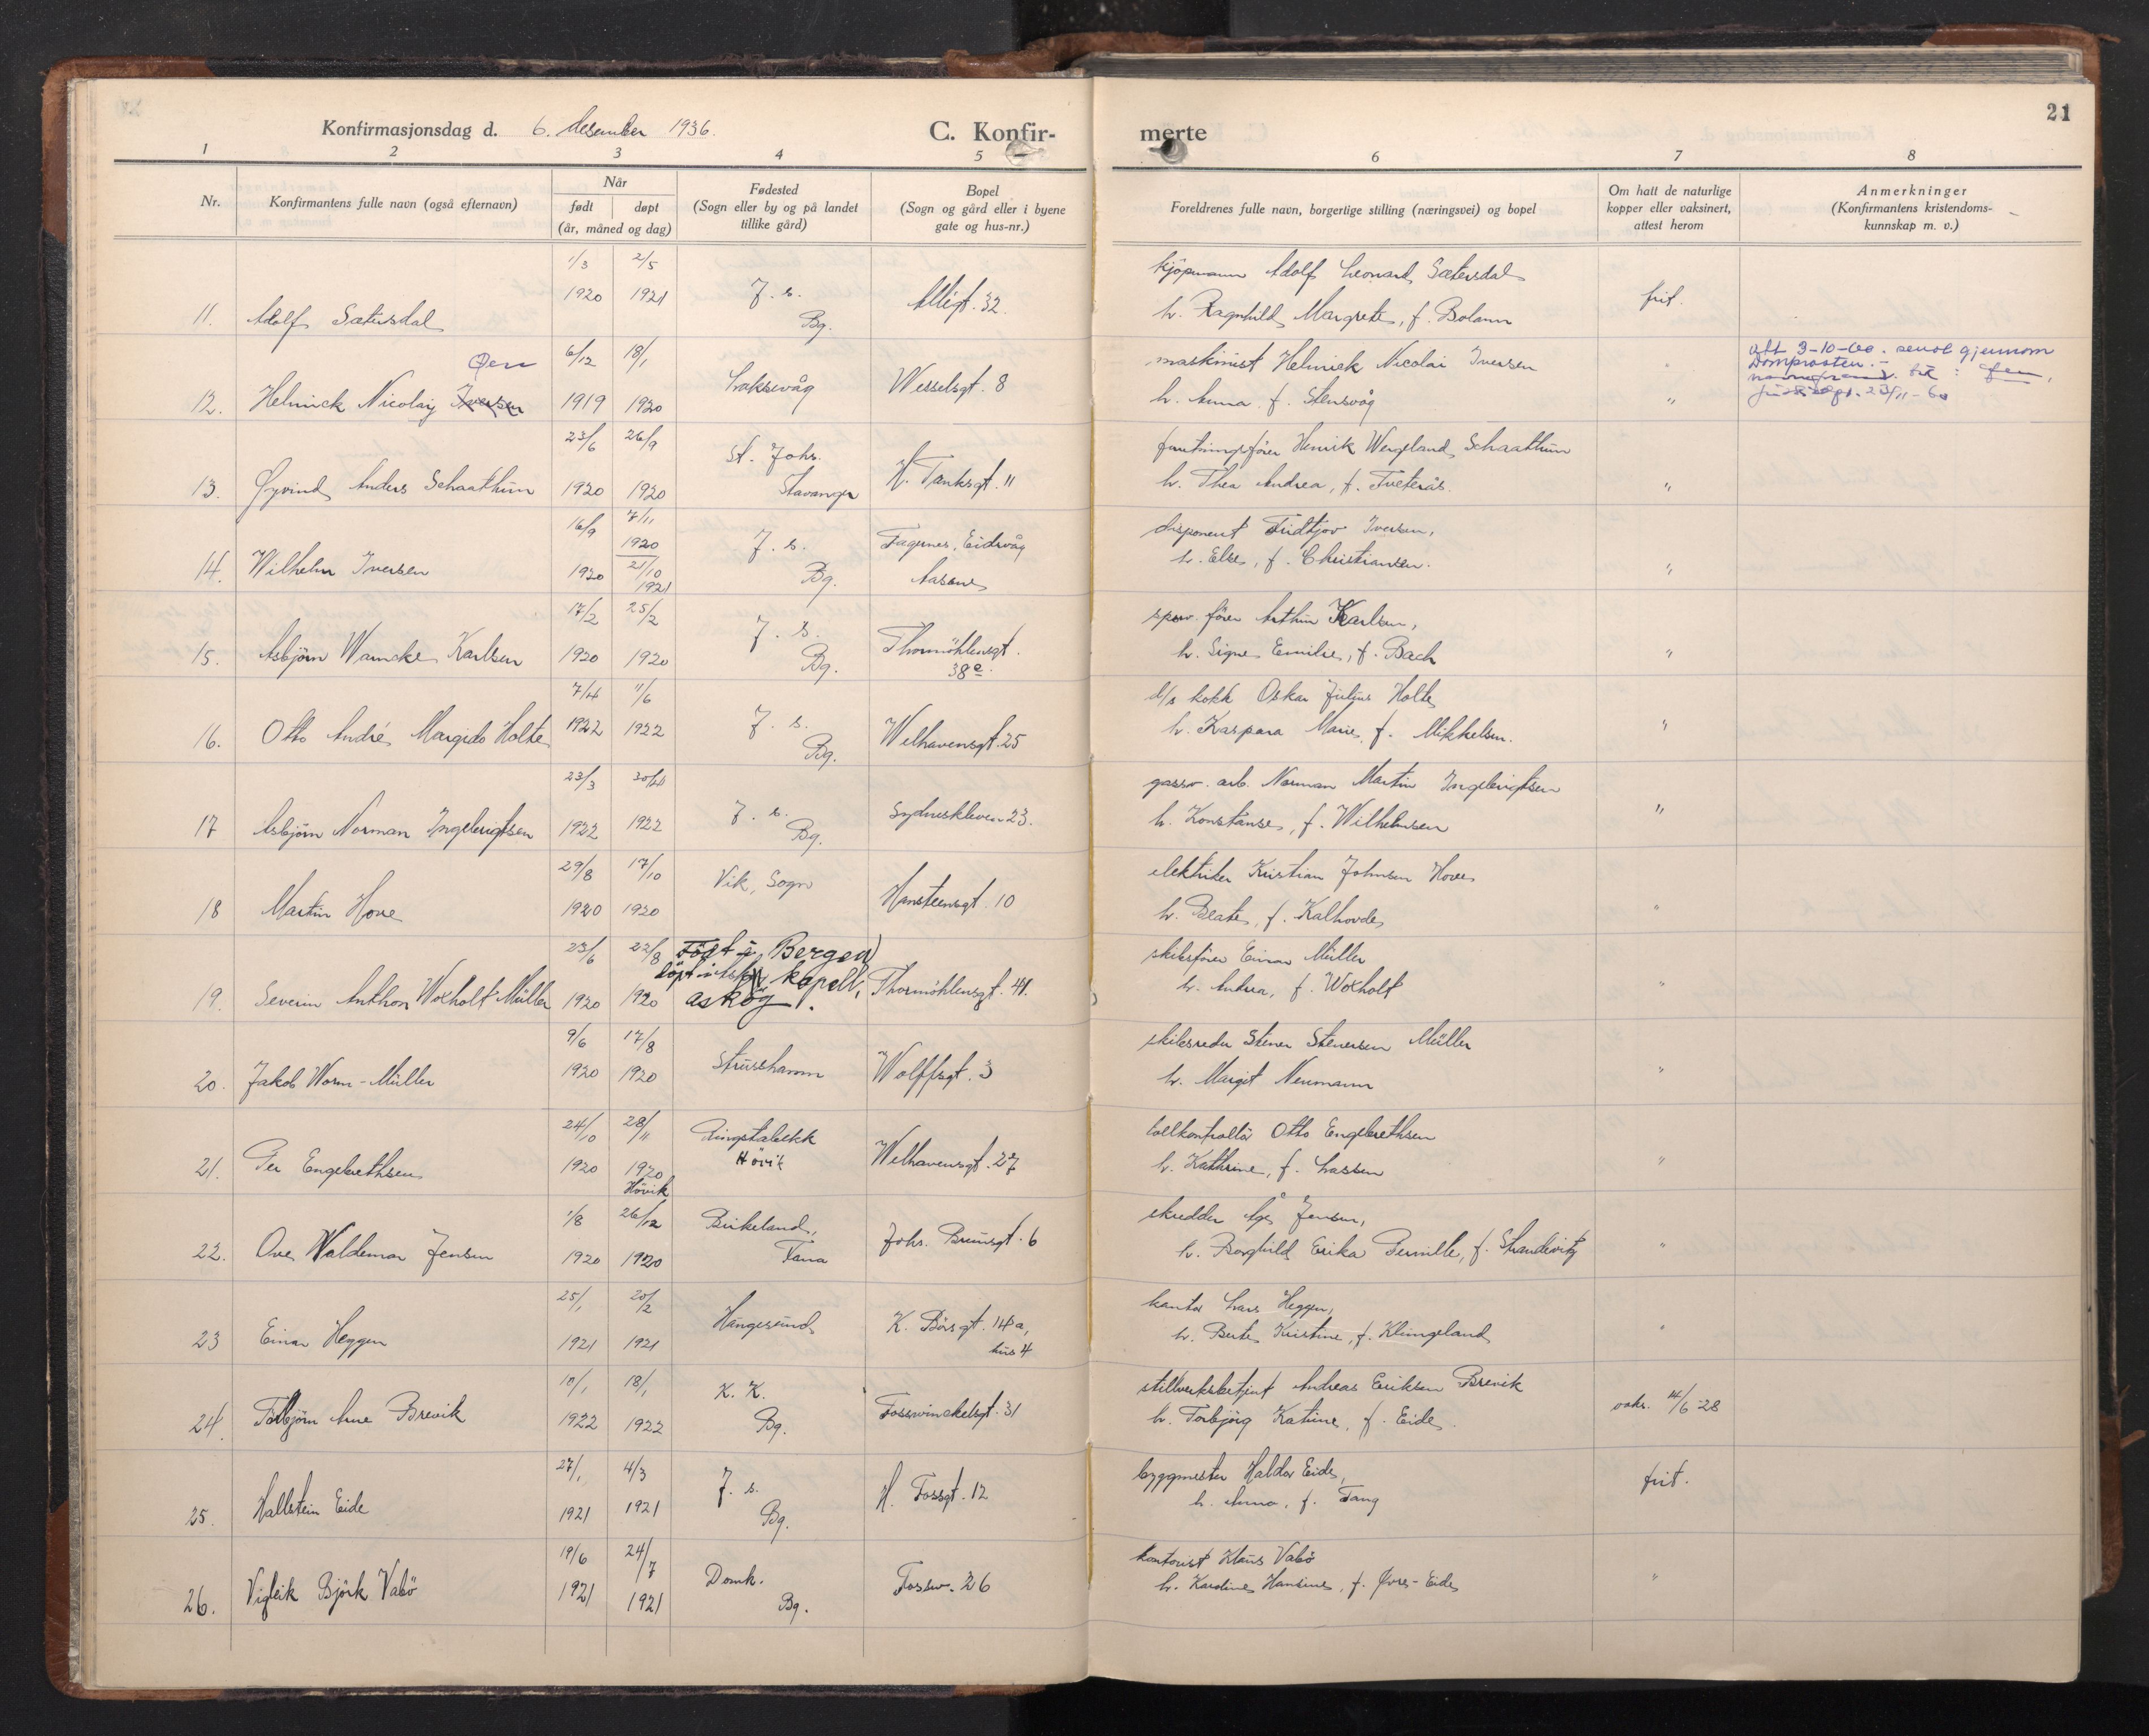 Konfirmasjonsdag d. 6. desember 1936. C. Konfir-
merte
21
1 2 3 4 5 6 7 8
Nr.
Konfirmantens fulle navn (også efternavn)
Når
født døpt
(år, måned og dag)
Fødested
(Sogn eller by og på landet
tillike gård)
Bopel
(Sogn og gård eller i byene
gate og hus-nr.)
Foreldrenes fulle navn, borgerlige stilling (næringsvei) og bopel
Om hatt de naturlige
kopper eller vaksinert,
attest herom
Anmerkninger
(Konfirmantens kristendoms-
kunnskap m. v.)
1/3 2/5 kjöpmann Adolf Leonard Sætersdal
11. Adolf Sætersdal 1920 1921 J. s. Bg. Allégt. 32. h. Ragnhild Margrete, f. Bolann frit.
Øen 6/12 18/1 maskinist Helmick Nicolai Iversen " att 3-10-60. sendt gjennom
Domprosten.
12. Helmick Nicolay Iversen 1919 1920 Laksevåg Wesselsgt. 8 h. Anna f. Stensvåg " 23/11-60
23/6 26/9 St. Johs. Henrik Wergeland Schaathun
13. Øyvind Anders Schaathun 1920 1920 Stavanger H. Tanksgt. 11 h. Thea Andrea, f. Tveterås. "
16/9 7/11 1920 J. s. Fagernes, Eidsvåg disponent Fridtjov Iversen,
14. Wilhelm Iversen 1920 21/10 1921 Bg. Aasane h. Else, f. Christiansen. "
17/2 25/2 J. s. Thormöhlensgt. sporv. förer Arthur Karlsen,
15. Asbjörn Warncke Karlsen 1920 1920 Bg. 38e. h. Signe Emilie, f. Bach "
7/4 11/6 J. s. d/s kokk Oskar Julius Holte
16. Otto André Margido Holte 1922 1922 Bg. Welhavensgt. 25 h. Kaspara Marie f. Mikkelsen. "
23/3 30/4 J. s. gassv. arb. Norman Martin Ingebrigtsen
17 Asbjörn Norman Ingebrigtsen 1922 1922 Bg. Sydneskleven 23. h. Konstanse, f. Wilhelmsen "
29/8 17/10 Vik, Sogn elektriker Kristian Johnsen Hove
18 Martin Hove 1920 1920 Hansteensgt. 10 h. Beate, f. Kalhovde "
23/6 22/8 Född i Bergen skibsförer Einar Müller
kapell,
19. Severin Anthon Woxholt Müller 1920 1920 askög. Thormöhlensgt. 41. h. Andrea, f. Woxholt "
9/6 17/8 skibsreder Stener Stenersen Müller
20. Jakob Worm-Müller 1920 1920 Strusshamn Wolffsgt. 3 h. Margit Neumann "
24/10 28/11 Ringstabekk tollkontrollör Otto Engebrethsen
21. Per Engebrethsen 1920 1920 Hövik Hövik Welhavensgt. 27 h. Kathrine, f. Lassen "
1/8 26/12 Birkeland, skredder Åge Jensen,
22. Ove Waldemar Jensen 1920 1920 Fana Johs. Brunsgt. 6 h. Borghild Erika Pernille, f. Strandevitz "
25/1 20/2 Haugesund K. Börs gt. 14a, kantor Lars Heggen,
23 Einar Heggen 1921 1921 hus 4 h. Berte Kristine, f. Klungeland "
10/1 18/1 K. K. stillverksbetjent Andreas Eriksen Brevik
24. Torbjörn Arne Brevik 1922 1922 Bg. Fosswinckelsgt. 31 h. Torbjörg Katrine, f. Eide. vaks. 14/6-28
27/1 4/3 J. s. byggmester Haldor Eide,
25. Hallstein Eide 1921 1921 Bg. H. Fossgt. 12 h. Anna, f. Tang frit.
19/6 24/7 Domk. kontorist Klaus Vabö
26. Vigleik Björk Vabö 1921 1921 Bg. Fossw. 26 h. Karoline Hansine, f. Øvre-Eide "